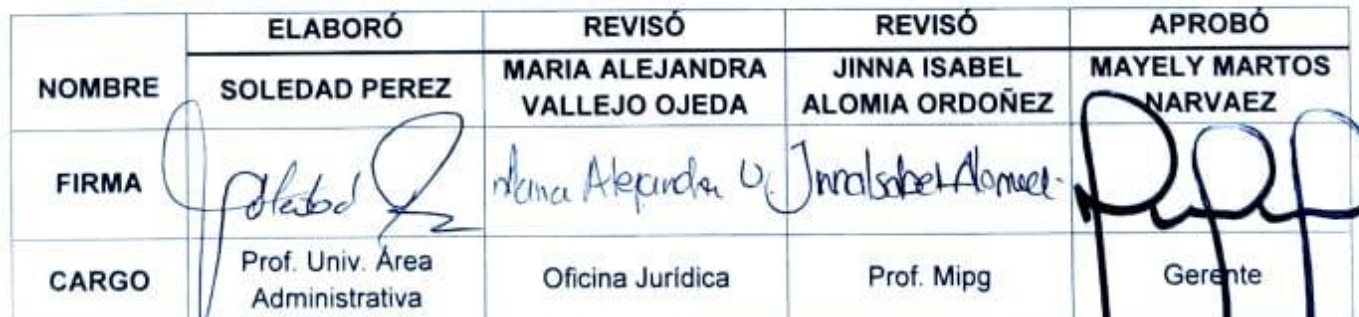 ELABORÓ REVISÓ REVISÓ APROBÓ
NOMBRE SOLEDAD PEREZ MARIA ALEJANDRA VALLEJO OJEDA JINNA ISABEL ALOMIA ORDOÑEZ MAYELY MARTOS NARVAEZ
FIRMA Soledad Maria Alejandra V. Jinna Isabel Alomia
CARGO Prof. Univ. Área Administrativa Oficina Jurídica Prof. Mipg Gerente